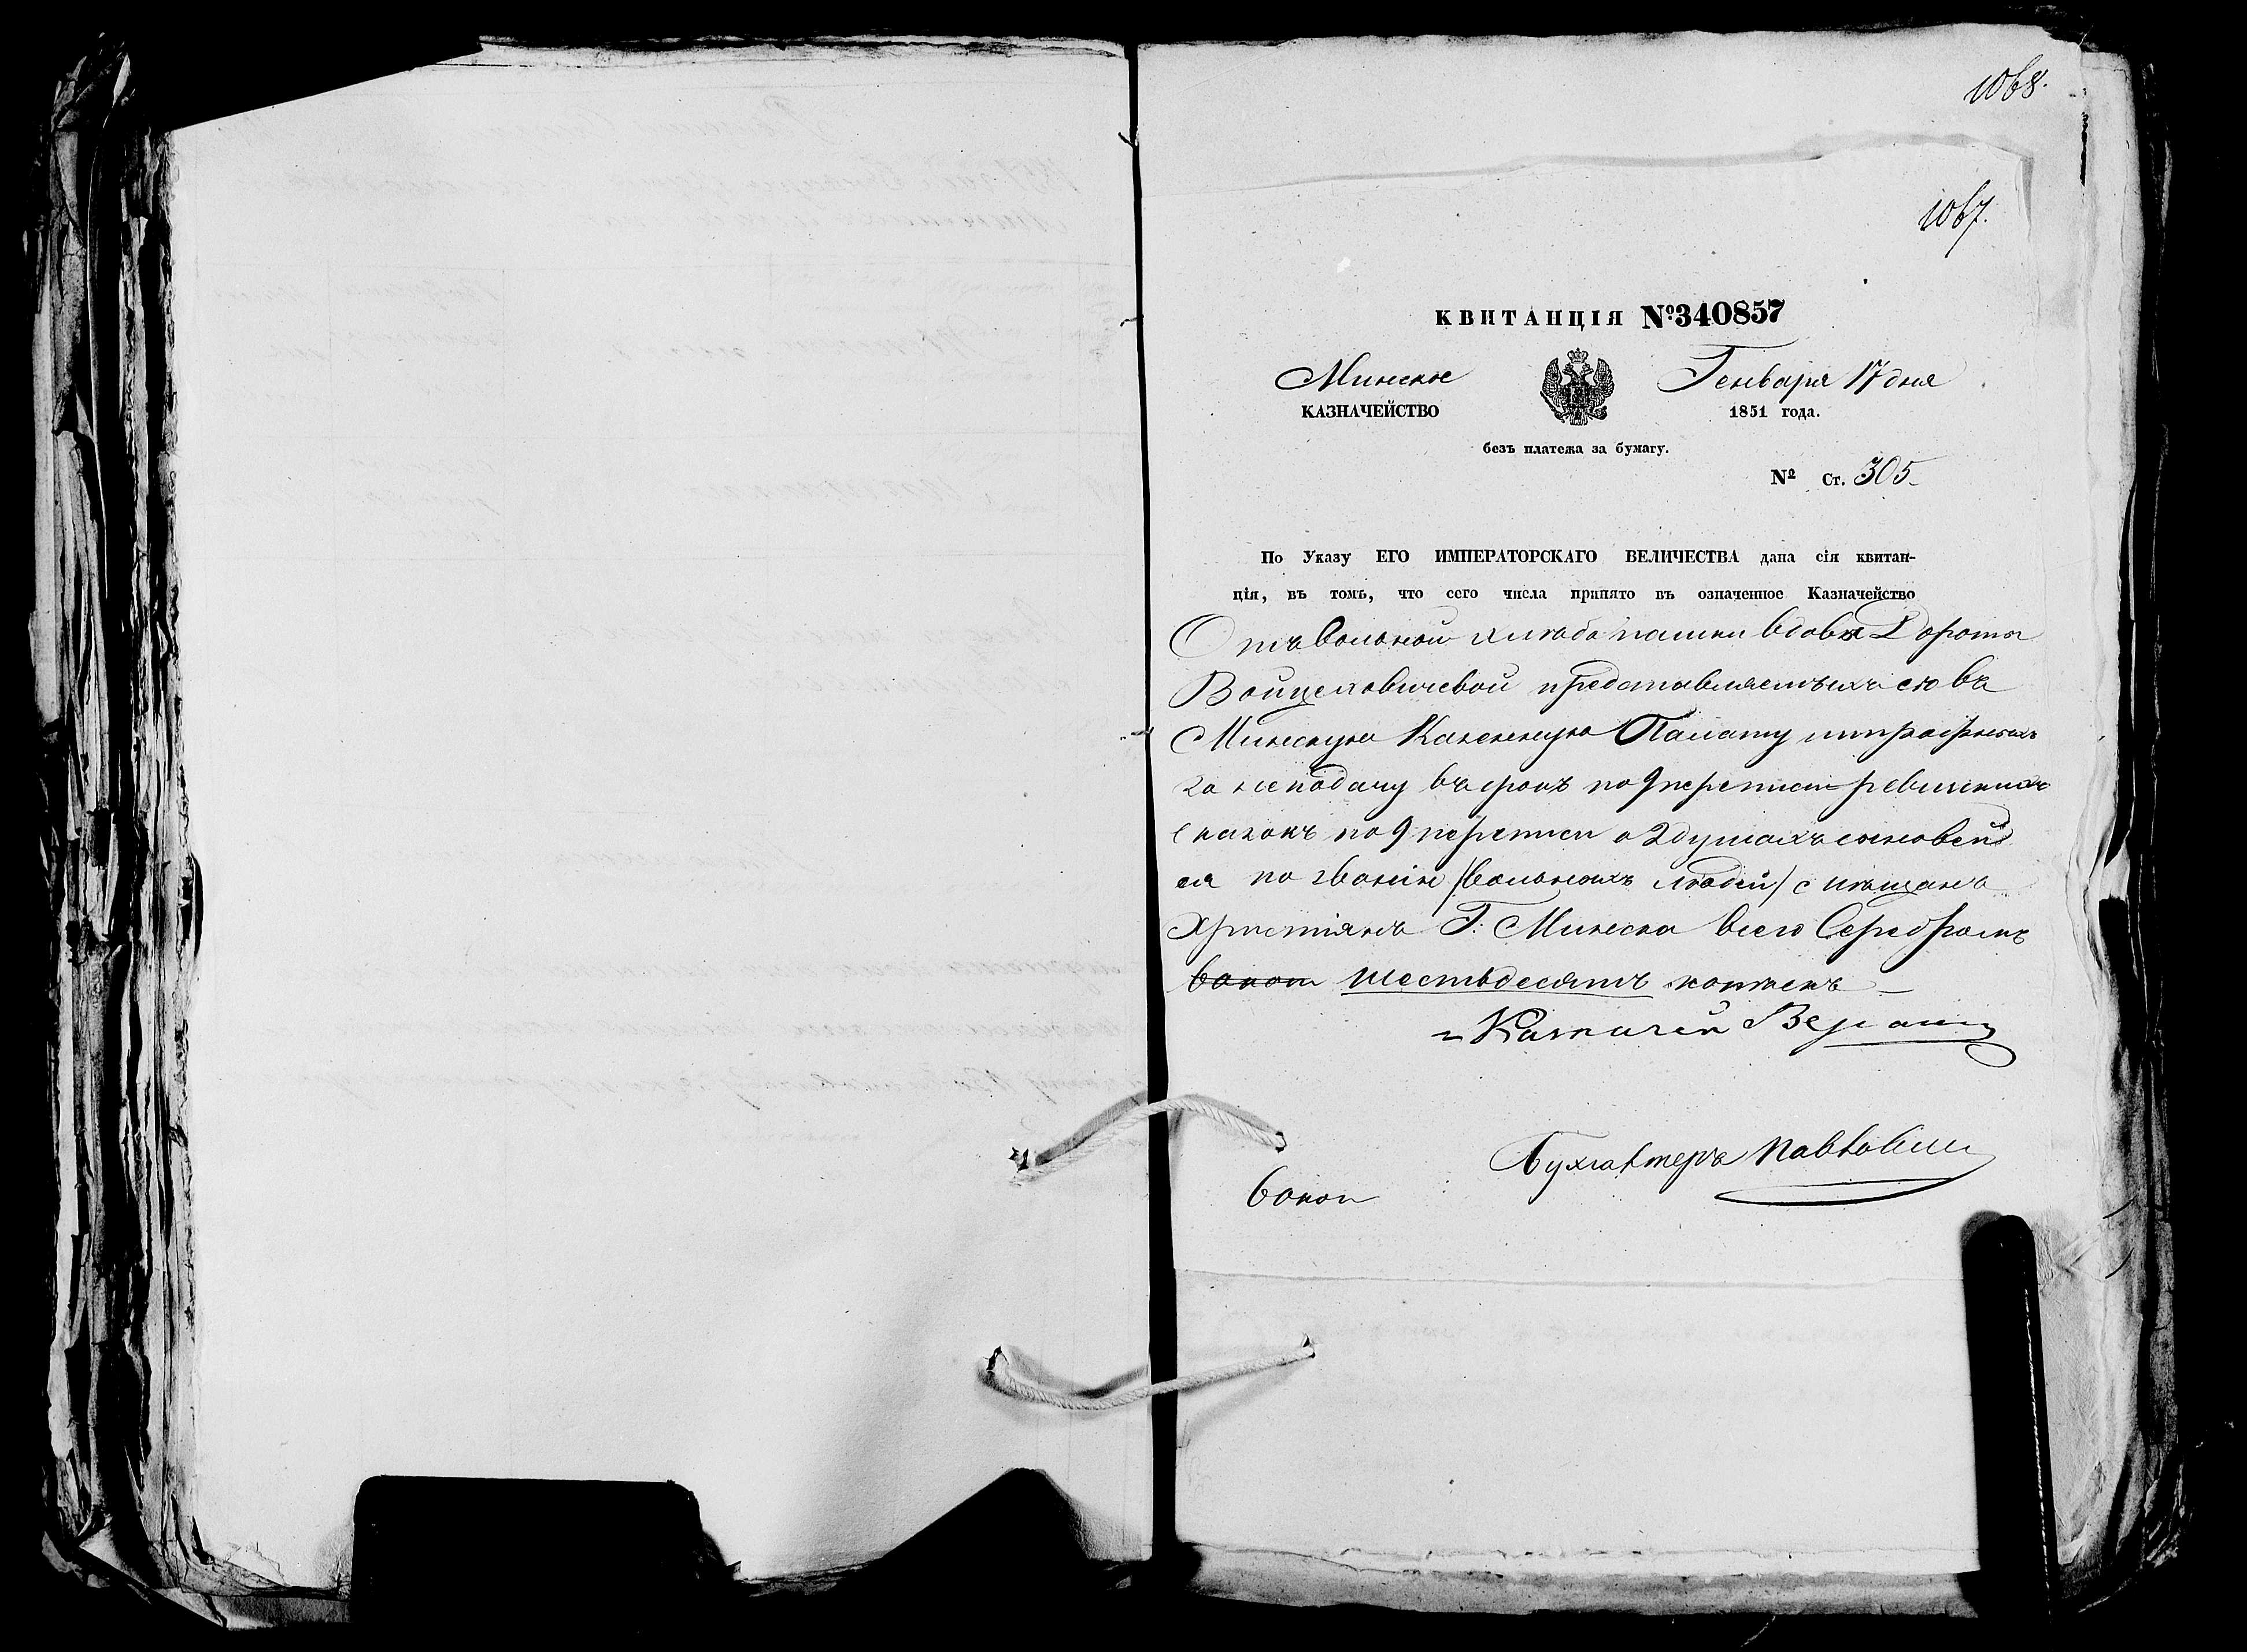 1068.
1067.
КВИТАНЦІЯ №340857
Минское Генваря 17 дня
КАЗНАЧЕЙСТВО 1851 года.
безъ платежа за бумагу.
№ Ст. 305
По Указу ЕГО ИМПЕРАТОРСКАГО ВЕЛИЧЕСТВА дана сія квитан-
ція, въ томъ, что сего числа принято въ означенное Казначейство
Отъ вольной хлѣбопашки вдовы Дороты
Войцеховичевой представляемыхъ ею въ
Минскую Казенную Палату штрафныхъ
за неподачу въ срокъ по 9 переписи ревизскихъ
сказокъ по 9 переписи о 2 душахъ сыновей
ея по званію (вольныхъ людей) с мѣщанъ
Христіянъ Г: Минска всего Серебромъ
60 коп шестьдесятъ копѣекъ
Казначей
Бухгалтеръ
60 коп